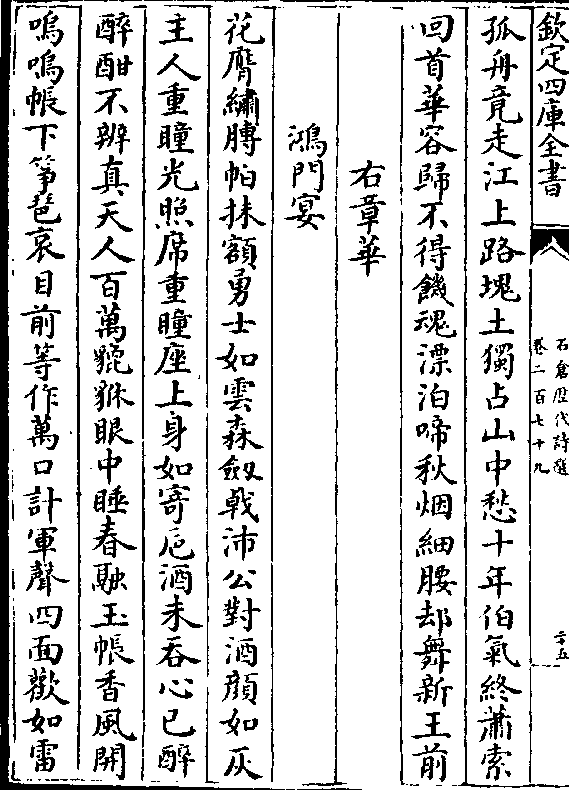 欽定四庫全書
石倉歷代詩選
卷二百七十九
二十五
孤舟竟走江上路塊土獨占山中愁十年伯氣終蕭索
回首華容歸不得饑魂漂泊啼秋烟細腰却舞新王前
右章華
鴻門宴
花鴈繡膊帕抹額勇士如雲森劔戟沛公對酒顔如灰
主人重瞳光照席重瞳座上身如寄巵酒未呑心已醉
醉酣不辨真天人百萬貔貅眼中睡春融玉帳香風開
嗚嗚帳下箏琶哀目前等作萬口計軍聲四面歡如雷